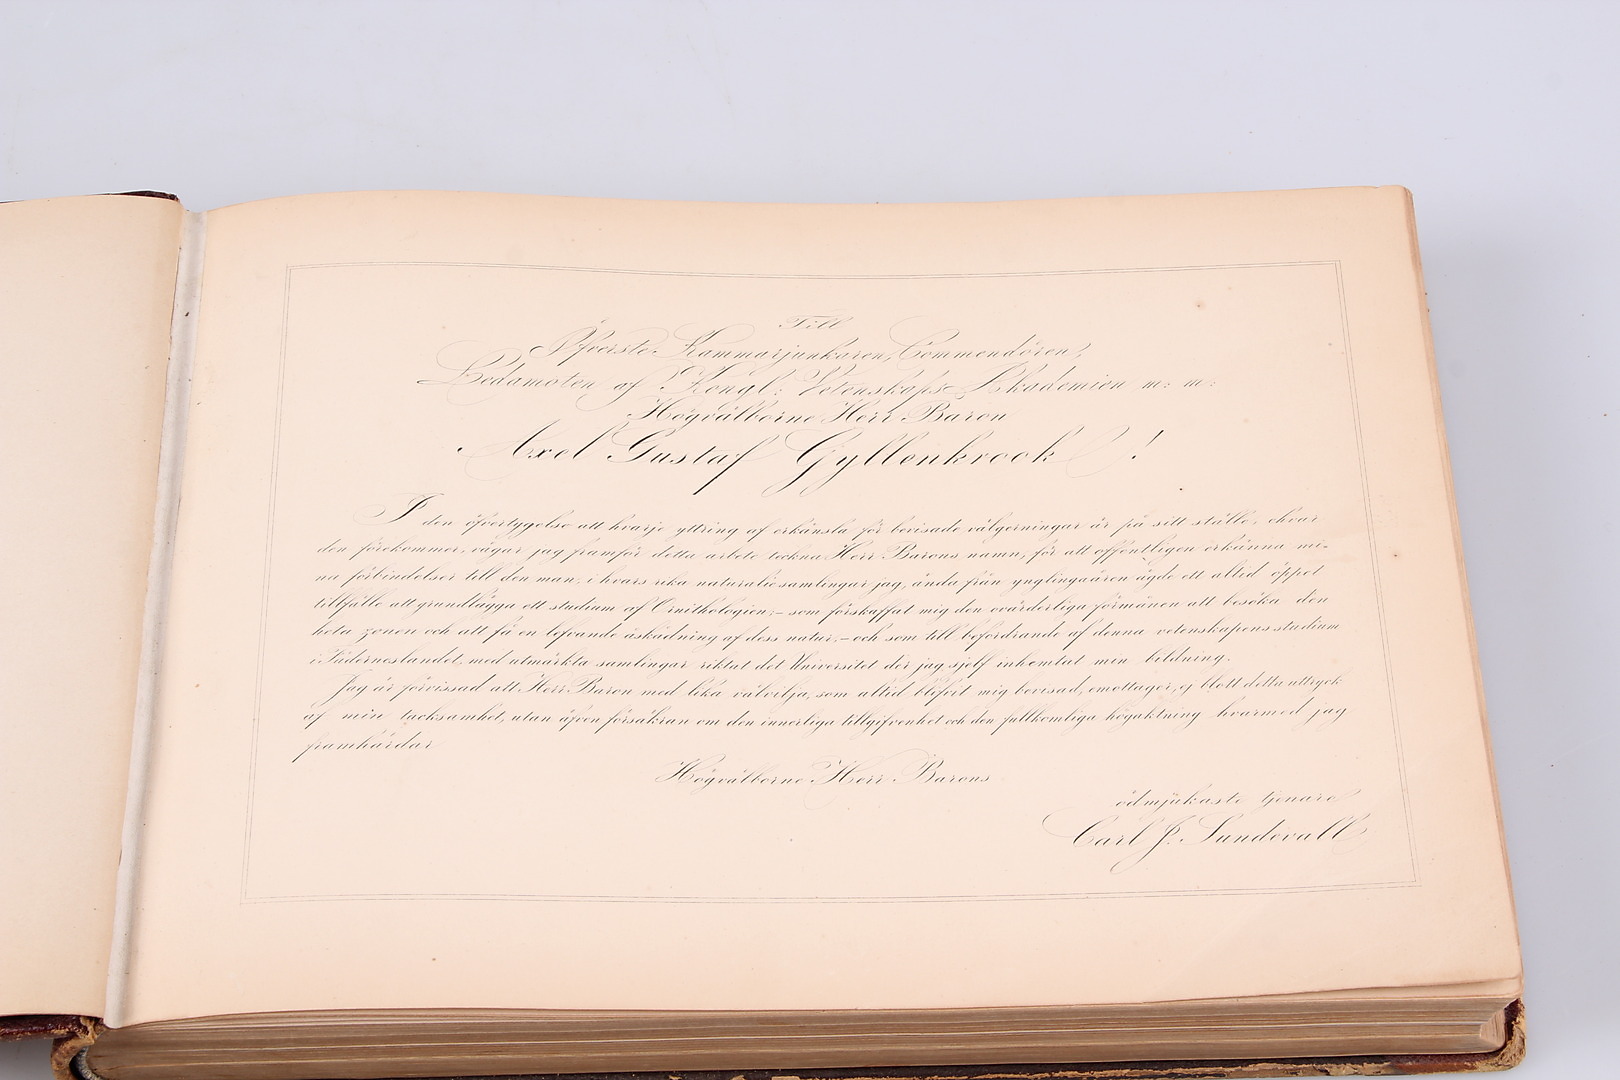 Till
Öfverste Kammarjunkaren, Commendören,
Ledamoten af Kongl: Vetenskaps-Akademien m: m:
Högvälborne Herr Baron
Axel Gustaf Gyllenkrook!
I den öfvertygelse att hvarje yttring af erkänsla för bevisade välgerningar är på sitt ställe, ehvar
den förekommer, vågar jag framför detta arbete teckna Herr Barons namn, för att offentligen erkänna mi-
na förbindelser till den man, i hvars rika naturaliesamlingar jag, ända från ynglingaåren ägde ett altid öppet
tillfälle att grundlägga ett studium af Ornithologien;- som förskaffat mig den ovärderliga förmånen att besöka den
heta zonen och att få en lefvande åskådning af dess natur;- och som till befordrande af denna vetenskapens studium
i Fäderneslandet, med utmärkta samlingar riktat det Universitet der jag sjelf inhemtat min bildning.
Jag är förvissad att Herr Baron med lika välvilja, som altid blifvit mig bevisad, emottager, ej blott detta uttryck
af min tacksamhet, utan äfven försäkran om den innerliga tillgifvenhet och den fullkomliga högaktning hvarmed jag
framhärdar
Högvälborne Herr Barons
ödmjukaste tjenare
Carl J. Sundevall